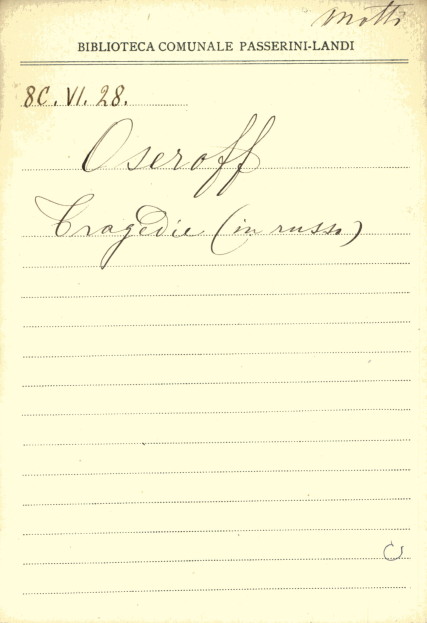 Motti
BIBLIOTECA COMUNALE PASSERINI-LANDI
8C. VI. 28.
Oseroff
Tragedie (in russo)
C